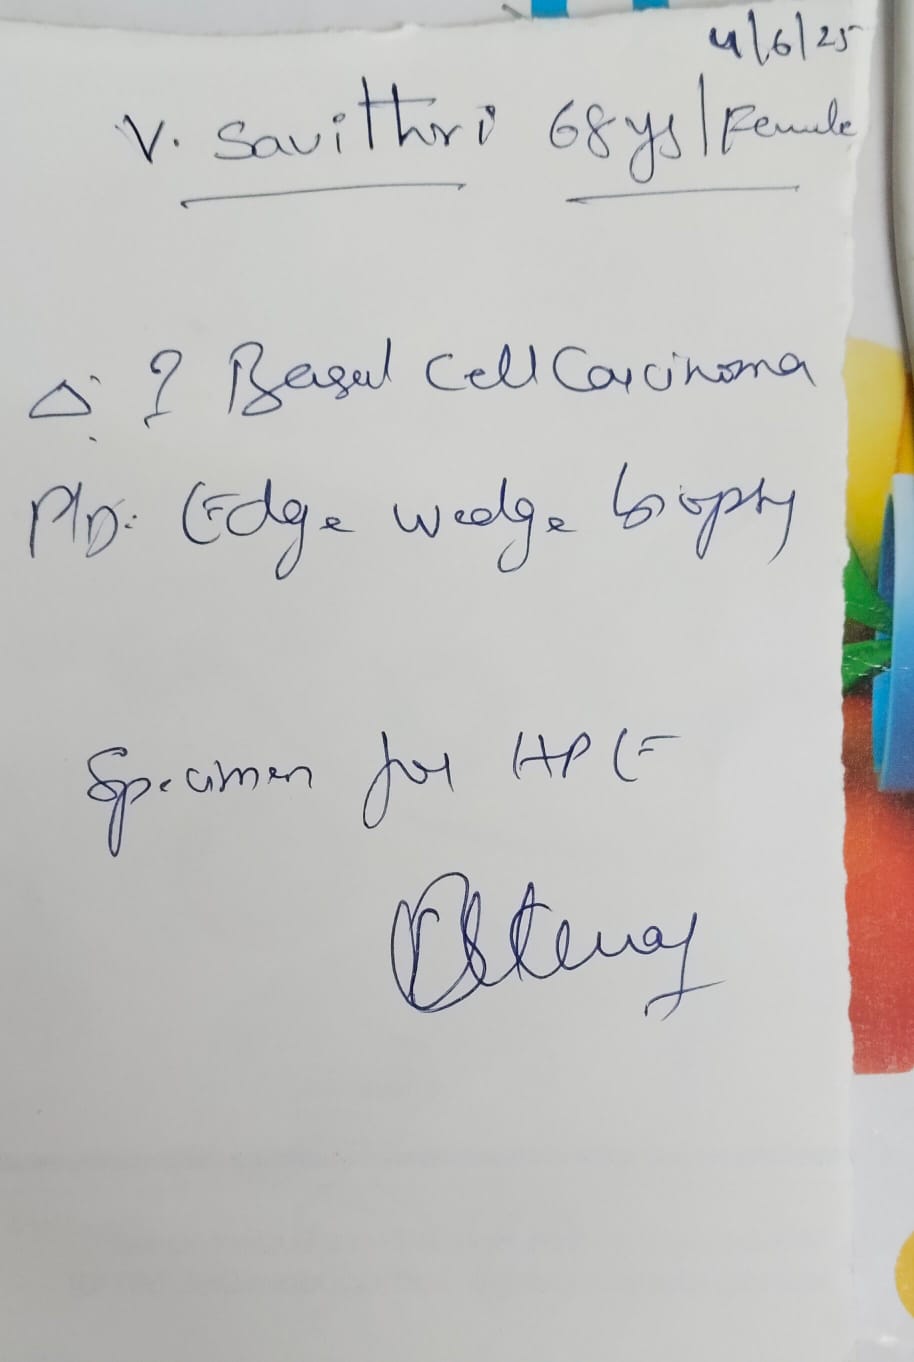 4/6/25
V. Savithri 68ys/Female
Δ: ? Basal Cell Carcinoma
Plb: Edge wedge biopsy
Specimen for HPE